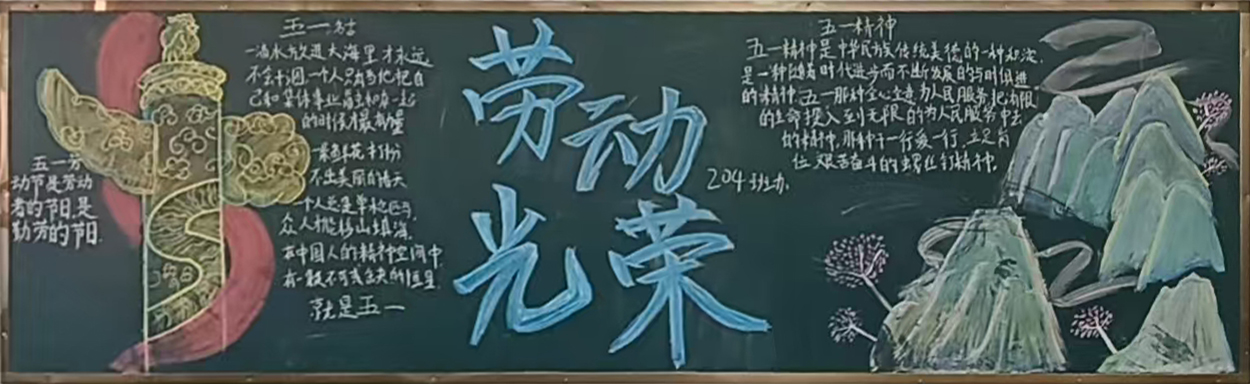 五一分
动节是劳动
者的节日.是
勤劳的节日.
五一
一滴水放进大海里才永远
不会干涸一个人只有当他把自
己和集体事业 在一起
的时候 最有 量
一 花
不出美丽的春天
一个人 是单
众人 能移山填海
在中国人的精神空间中
有一 不可或缺的恒星
就是五一
劳动
光荣
五一精神
五一精神是中华民族传统美德的一种
是一种 着时代进步而不断发展的与时俱进
的精神.五一那种全心全意为人民服务把有限
的生命投入到无限的为人民服务中去
的精神.那种干一行爱一行.立足岗
位艰苦奋斗的螺丝钉精神.
204班